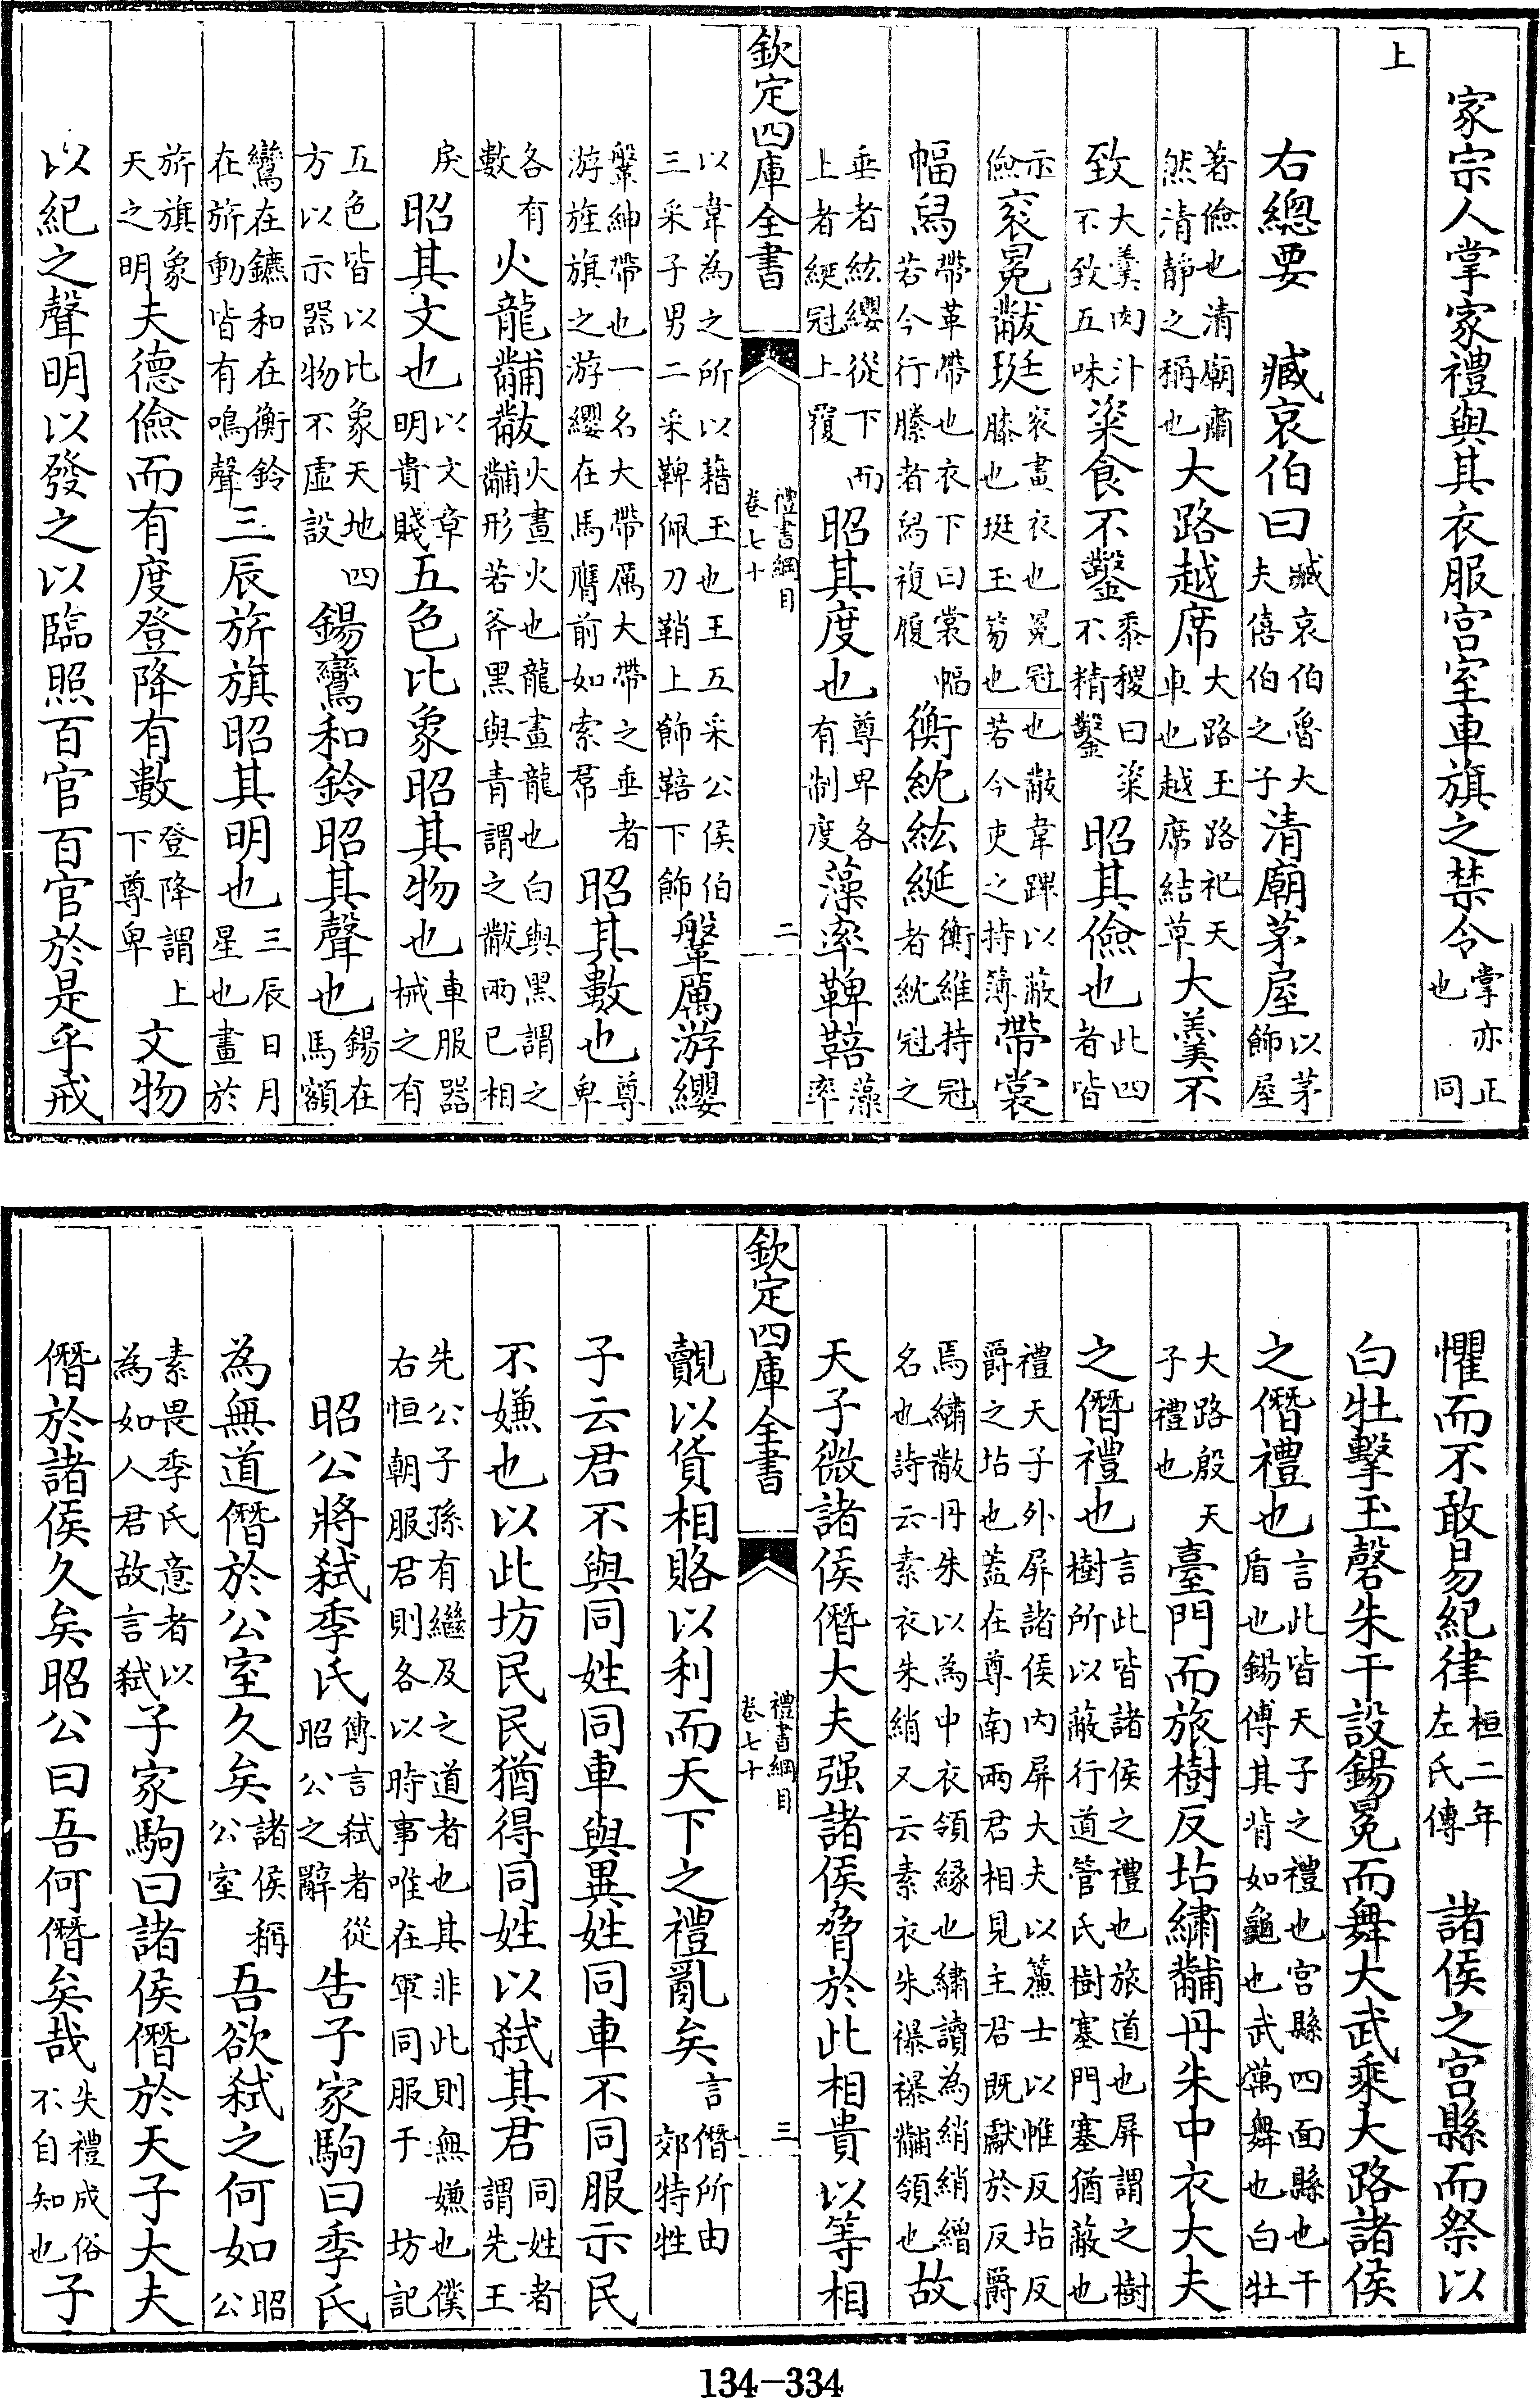 家宗人掌家禮與其衣服宫室車旗之禁令掌亦正也同
上
右總要　臧哀伯曰臧哀伯魯大夫僖伯之子清廟茅屋以茅飾屋
著儉也清廟肅然清靜之稱也大路越席大路玉路祀天車也越席結草大羹不
致大羮肉汁不致五味粢食不鑿黍稷曰粢不精鑿昭其儉也此四者皆
示儉衮冕黻珽衮畫衣也冕冠也黻韋韠以蔽膝也珽玉笏也若今吏之持簿帶裳
幅舄帶革帶也衣下曰裳幅若今行縢者舄複履衡紞紘綖衡維持冠者紞冠之
垂者紘纓從下而上者綖冠上覆昭其度也尊卑各有制度藻率鞞鞛藻率
欽定四庫全書　禮書綱目卷七十　二
以韋為之所以藉玉也王五采公侯伯三采子男二采鞞佩刀鞘上飾鞛下飾鞶厲游纓
鞶紳帶也一名大帶厲大帶之垂者游旌旗之游纓在馬膺前如索帬昭其數也尊卑
各有數火龍黼黻火畫火也龍畫龍也白與黑謂之黼形若斧黑與青謂之黻兩已相
戾昭其文也以文章明貴賤五色比象昭其物也車服器械之有
五色皆以比象天地四方以示器物不虚設鍚鸞和鈴昭其聲也鍚在馬額
鸞在鑣和在衡鈴在旂動皆有鳴聲三辰旂旗昭其明也三辰日月星也畫於
旂旗象天之明夫德儉而有度登降有數登降謂上下尊卑文物
以紀之聲明以發之以臨照百官百官於是乎戒
懼而不敢易紀律桓二年左氏傳　諸侯之宫縣而祭以
白牡擊玉磬朱干設鍚冕而舞大武乘大路諸侯
之僭禮也言此皆天子之禮也宫縣四面縣也干盾也鍚傅其背如龜也武萬舞也白牡
大路殷天子禮也臺門而旅樹反坫繡黼丹朱中衣大夫
之僭禮也言此皆諸侯之禮也旅道也屏謂之樹樹所以蔽行道管氏樹塞門塞猶蔽也
禮天子外屏諸侯内屏大夫以簾士以帷反坫反爵之坫也蓋在尊南兩君相見主君既獻於反爵
焉繡黻丹朱以為中衣領緣也繡讀為綃綃繒名也詩云素衣朱綃又云素衣朱襮襮黼領也故
天子微諸侯僭大夫强諸侯脅於此相貴以等相
欽定四庫全書　禮書綱目卷七十　三
覿以貨相賂以利而天下之禮亂矣言僭所由郊特牲
子云君不與同姓同車與異姓同車不同服示民
不嫌也以此坊民民猶得同姓以弑其君同姓者謂先王
先公子孫有繼及之道者也其非此則無嫌也僕右恒朝服君則各以時事唯在軍同服于坊記
昭公將弑季氏傳言弑者從昭公之辭告子家駒曰季氏
為無道僭於公室久矣諸侯稱公室吾欲弑之何如昭公
素畏季氏意者以為如人君故言弑子家駒曰諸侯僭於天子大夫
僭於諸侯久矣昭公曰吾何僭矣哉失禮成俗不自知也子
134-334